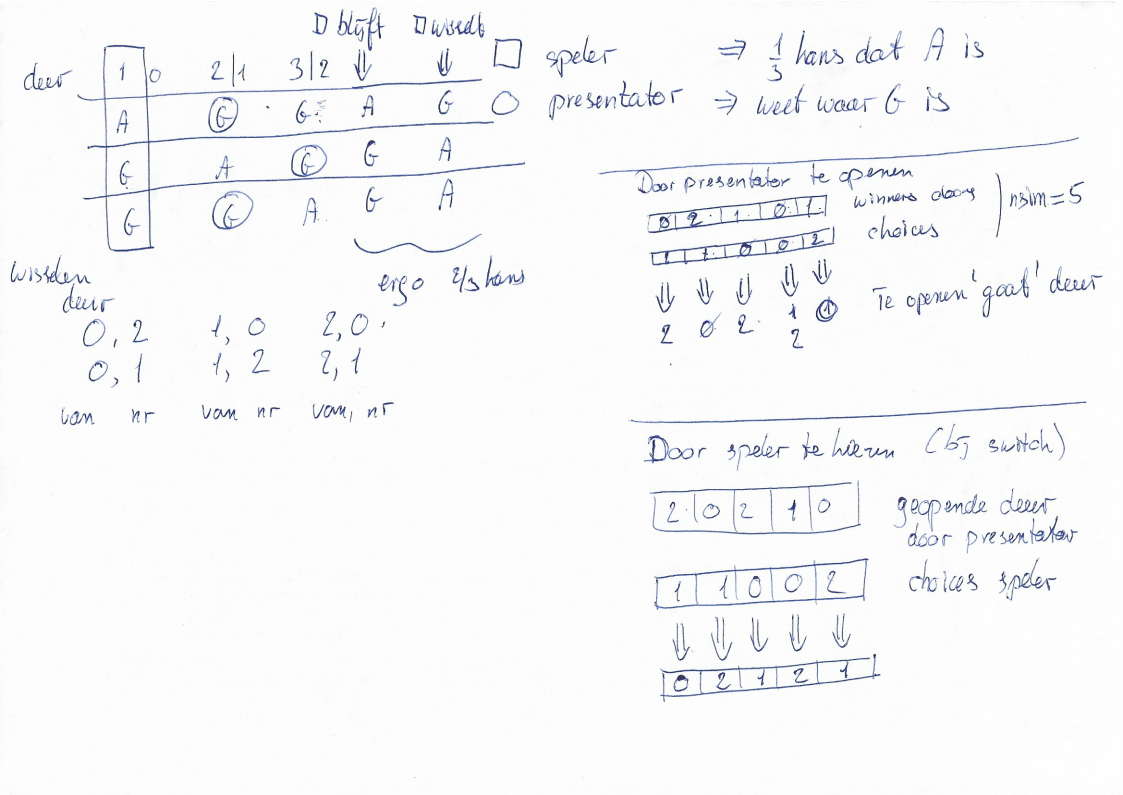 □ blijft □ wisselt
deur 1 0 2|1 3|2 ⇓ ⇓
A G G A G
G A G G A
G G A G A
ergo 2/3 kans
□ speler ⇒ 1/3 kans dat A is
○ presentator ⇒ weet waar G is
wisselen
deur
0, 2 1, 0 2, 0
0, 1 1, 2 2, 1
van nr van nr van, nr
Door presentator te openen
0 2 1 0 1 winners doors
1 1 0 0 2 choices
nsim = 5
⇓ ⇓ ⇓ ⇓ ⇓
2 0 2 1 ① Te openen 'goat' deur
2
Door speler te kiezen (bij switch)
2 0 2 1 0 geopende deur
door presentator
1 1 0 0 2 choices speler
⇓ ⇓ ⇓ ⇓ ⇓
0 2 1 2 1